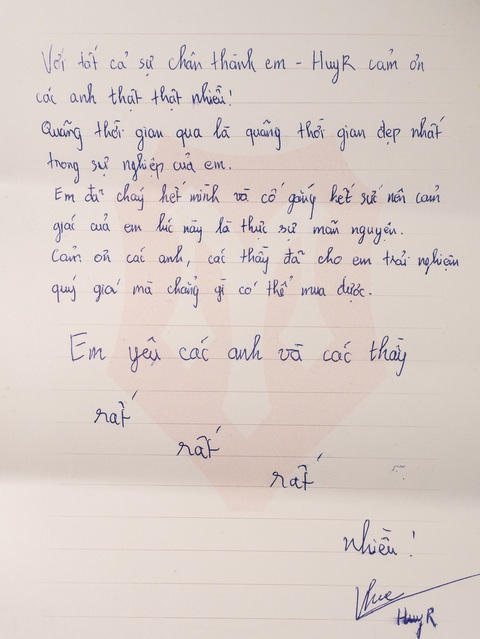 Với tất cả sự chân thành em - HuyR cảm ơn
các anh thật thật nhiều!
Quãng thời gian qua là quãng thời gian đẹp nhất
trong sự nghiệp của em.
Em đã cháy hết mình và cố gắng hết sức nên cảm
giác của em lúc này là thực sự mãn nguyện.
Cảm ơn các anh, các thầy đã cho em trải nghiệm
quý giá mà chẳng gì có thể mua được.
Em yêu các anh và các thầy
rất
rất
rất
nhiều!
HuyR